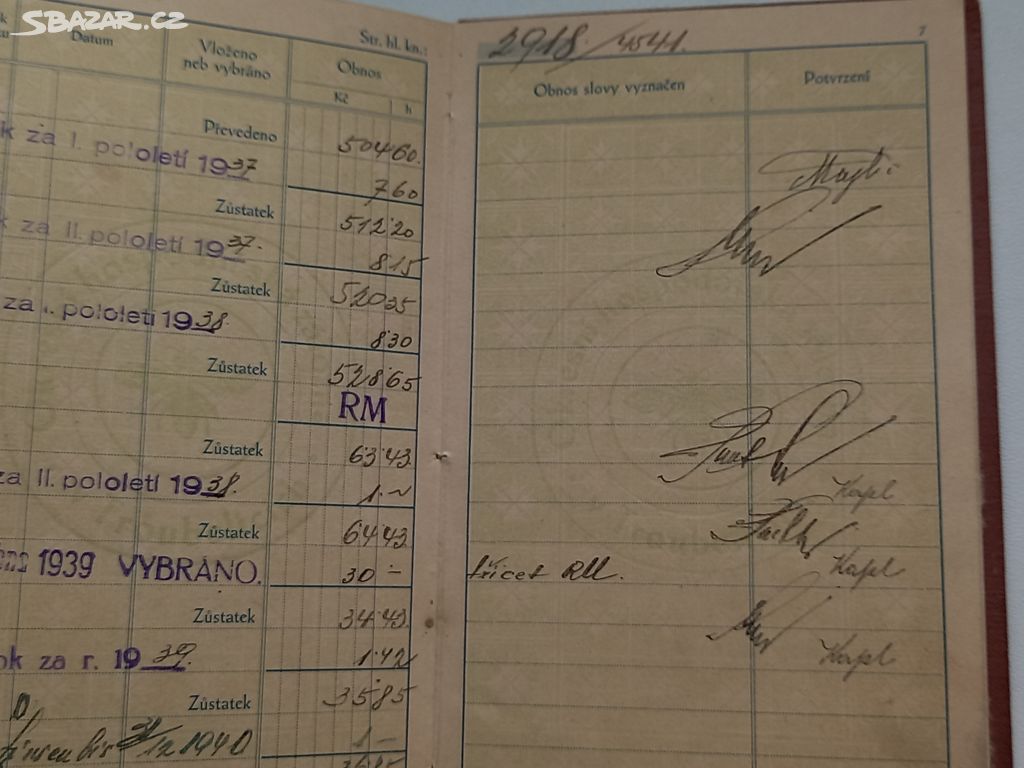 SBAZAR.CZ
Datum
Vloženo
neb vybráno
Str. hl. kn.:
Obnos
Kč h
Převedeno 504 60
k za I. pololetí 1937 7 60
Zůstatek 512 20
k za II. pololetí 1937. 8 15
Zůstatek 520 35
za I. pololetí 1938. 8 30
Zůstatek 528 65
RM
Zůstatek 63 43
za II. pololetí 1938. 1.~
Zůstatek 64 43
1939 VYBRÁNO. 30 –
Zůstatek 34 43
ok za r. 1939. 1 42
Zůstatek 35 85
31/12 1940 1 –
2918/4541.
7
Obnos slovy vyznačen
Potvrzení
Kapl
třicet RM.
Kapl
Kapl